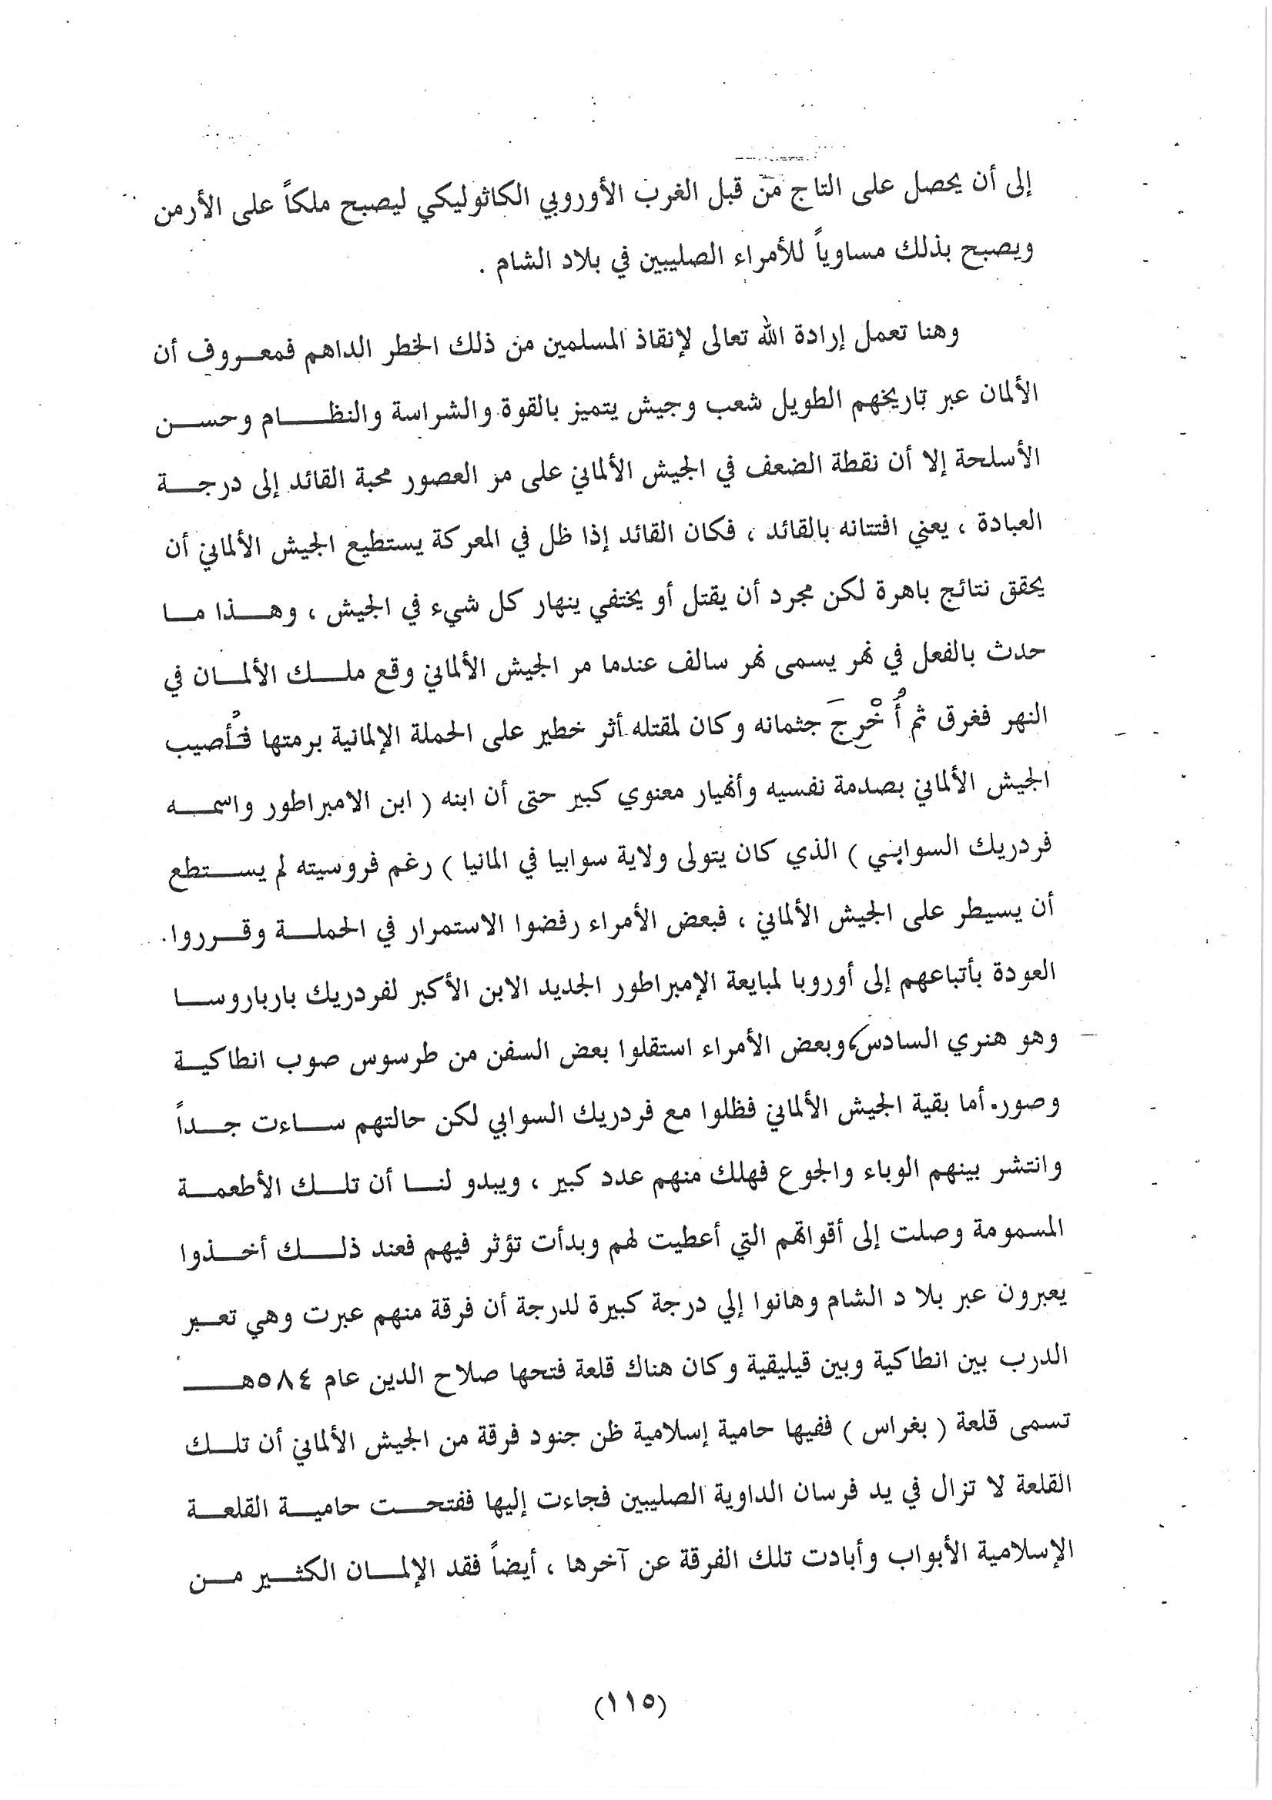 إلى أن يحصل على التاج من قبل الغرب الأوروبي الكاثوليكي ليصبح ملكاً على الأرمن
ويصبح بذلك مساوياً للأمراء الصليبين في بلاد الشام .
وهنا تعمل إرادة الله تعالى لإنقاذ المسلمين من ذلك الخطر الداهم فمعروف أن
الألمان عبر تاريخهم الطويل شعب وجيش يتميز بالقوة والشراسة والنظام وحسن
الأسلحة إلا أن نقطة الضعف في الجيش الألماني على مر العصور محبة القائد إلى درجة
العبادة ، يعني افتتانه بالقائد ، فكان القائد إذا ظل في المعركة يستطيع الجيش الألماني أن
يحقق نتائج باهرة لكن مجرد أن يقتل أو يختفي ينهار كل شيء في الجيش ، وهذا ما
حدث بالفعل في نهر يسمى نهر سالف عندما مر الجيش الألماني وقع ملك الألمان في
النهر فغرق ثم أُخْرِجَ جثمانه وكان لمقتله أثر خطير على الحملة الإلمانية برمتها فأُصيب
الجيش الألماني بصدمة نفسيه وأنهيار معنوي كبير حتى أن ابنه ( ابن الامبراطور واسمه
فردريك السوابي ) الذي كان يتولى ولاية سوابيا في المانيا ) رغم فروسيته لم يستطع
أن يسيطر على الجيش الألماني ، فبعض الأمراء رفضوا الاستمرار في الحملة وقرروا.
العودة بأتباعهم إلى أوروبا لمبايعة الإمبراطور الجديد الابن الأكبر لفردريك بارباروسا
وهو هنري السادس، وبعض الأمراء استقلوا بعض السفن من طرسوس صوب انطاكية
وصور. أما بقية الجيش الألماني فظلوا مع فردريك السوابي لكن حالتهم ساءت جداً
وانتشر بينهم الوباء والجوع فهلك منهم عدد كبير ، ويبدو لنا أن تلك الأطعمة
المسمومة وصلت إلى أقواتهم التي أعطيت لهم وبدأت تؤثر فيهم فعند ذلك أخذوا
يعبرون عبر بلا د الشام وهانوا إلي درجة كبيرة لدرجة أن فرقة منهم عبرت وهي تعبر
الدرب بين انطاكية وبين قيليقية وكان هناك قلعة فتحها صلاح الدين عام ٥٨٤هـ
تسمى قلعة ( بغراس ) ففيها حامية إسلامية ظن جنود فرقة من الجيش الألماني أن تلك
القلعة لا تزال في يد فرسان الداوية الصليبين فجاءت إليها ففتحت حامية القلعة
الإسلامية الأبواب وأبادت تلك الفرقة عن آخرها ، أيضاً فقد الإلمان الكثير من
(١١٥)